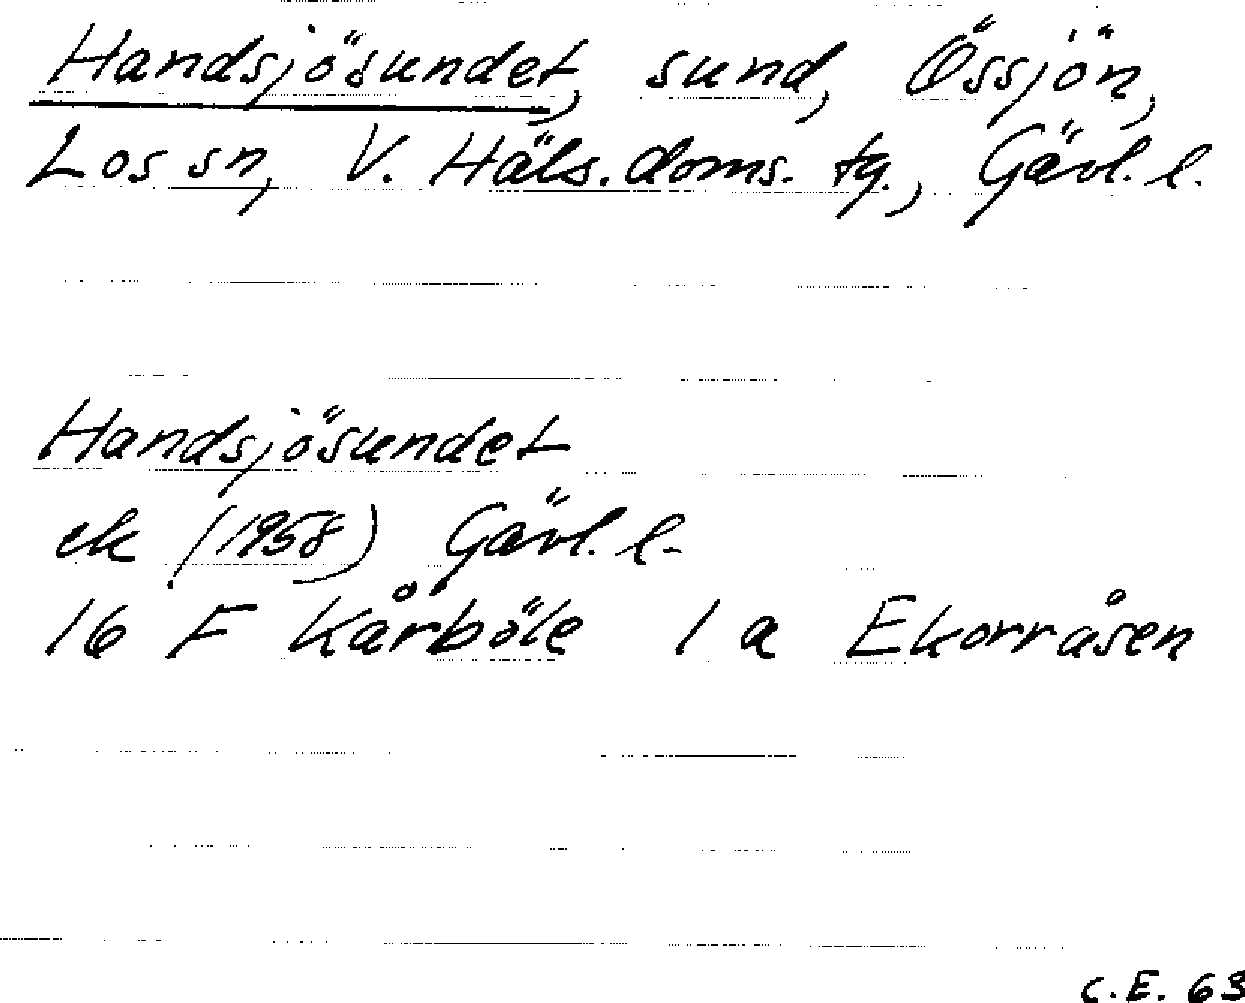 Handsjösundet, sund, Össjön,
Los sn, V. Häls. doms. tg., Gävl. l.
Handsjösundet
ek (1958) Gävl. l.
16 F Kårböle 1 a Ekorråsen
C.E. 63